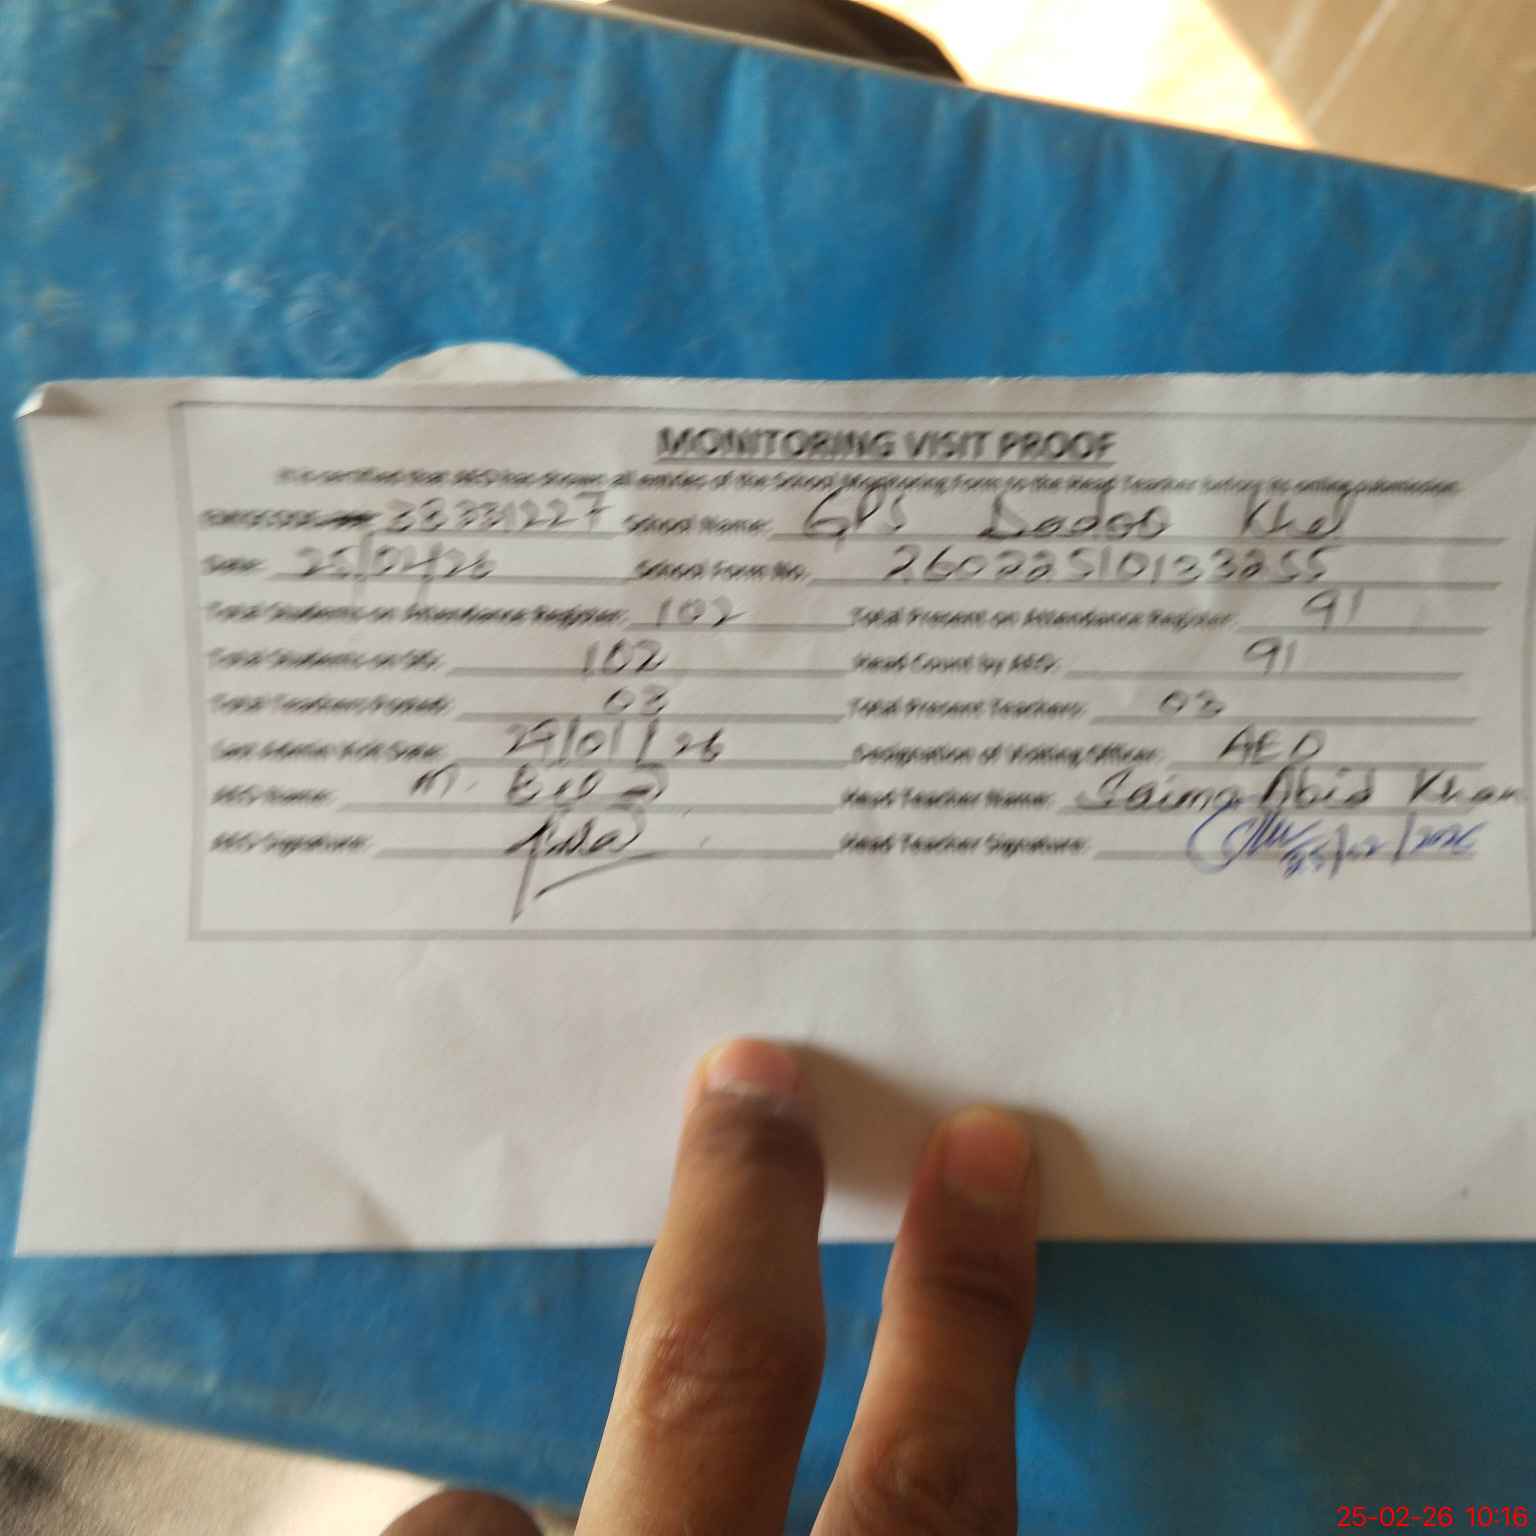 MONITORING VISIT PROOF
It is certified that AEO has shown all entries of the School Monitoring Form to the Head Teacher before its online submission.
38331227 School Name: GPS Dadoo Khel
Date: 25/02/26 School Form No. 26022510133255
Total Students on Attendance Register: 102 Total Present on Attendance Register: 91
Total Students on SIS: 102 Head Count by AEO: 91
Total Teachers Posted: 03 Total Present Teachers: 03
Visit Date: 29/01/26 Designation of Visiting Officer: AEO
AEO Name: M. Head Teacher Name: Saima Abid Khan
AEO Signature: Head Teacher Signature: 25/02/2026
25-02-26 10:16